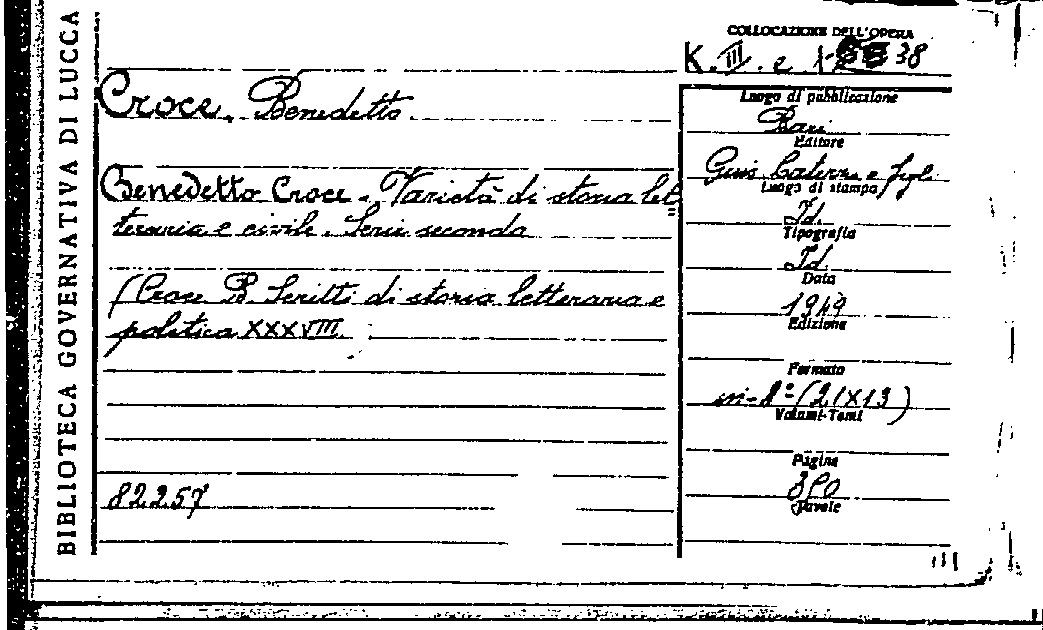 BIBLIOTECA GOVERNATIVA DI LUCCA
COLLOCAZIONE DELL'OPERA
K. III. e 38
Croce, Benedetto.
Benedetto Croce. Varietà di storia let=
teraria e civile. Serie seconda
(Croce B. Scritti di storia letteraria e
politica XXXVIII.
82257
Luogo di pubblicazione
Bari
Editore
Gius. Laterza e figli
Luogo di stampa
Id.
Tipografia
Id.
Data
1949
Edizione
Formato
in-8° (21X13)
Volumi-Tomi
Pagine
Tavole